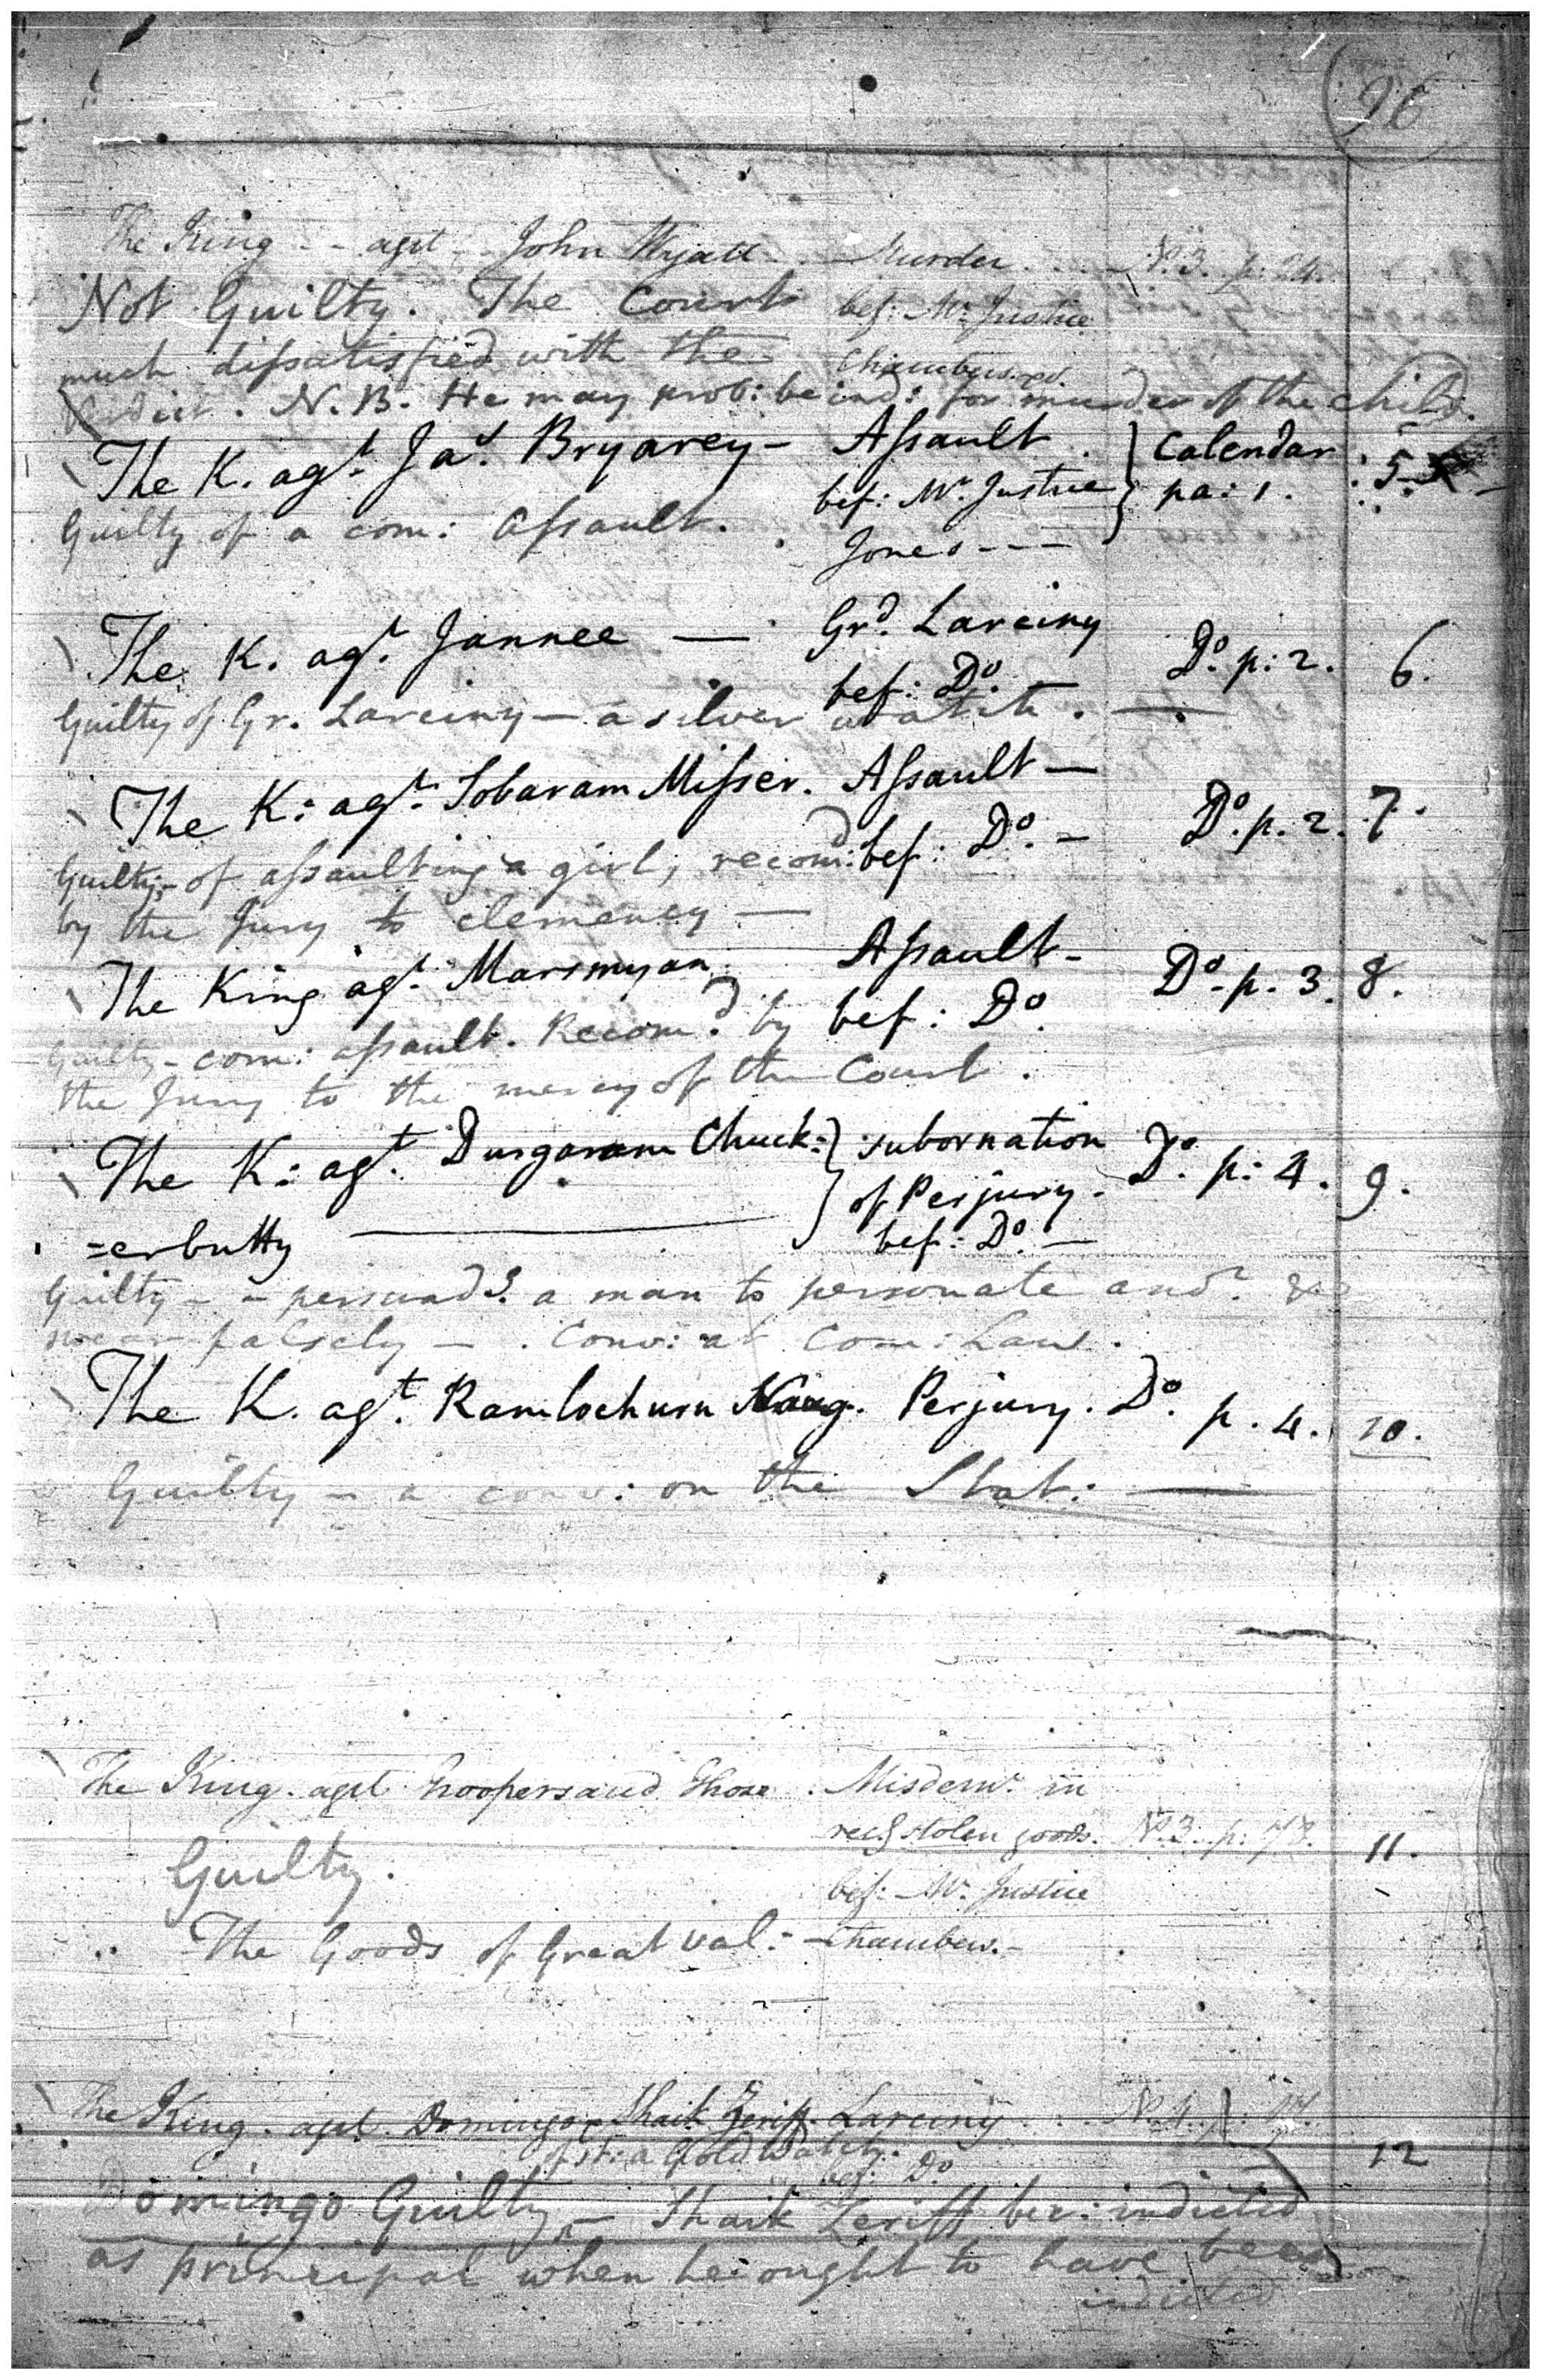 96
The King - - agst John Wyatt - - Murder - - - No. 3. p: 24.
Not Guilty. The Court bef: Mr. Justice
much dissatisfied with the Chambers.
Verdict. N.B. He may prob: be ind: for murder of the child.
The K. agt. Jas. Bryarey - Assault } Calendar 5
bef: Mr. Justice } pa: 1.
Guilty of a com: Assault. Jones - - -
The K. agt. Jannee — Grd. Larciny Do. p: 2. 6.
bef: Do.
Guilty of Gr. Larciny — a silver watch. —
The K: agt. Sobaram Misser. Assault — Do. p. 2. 7.
Guilty - of assaulting a girl, recomd: bef: Do. -
by the Jury to clemency —
The King agt. Marsmyan Assault - Do. p. 3. 8.
Guilty - com: assault. Recomd. by bef: Do.
the Jury to the mercy of the Court.
The K: agt. Durgaram Chuck= } subornation Do. p: 4. 9.
} of Perjury -
=erbutty — bef: Do. —
Guilty - - persuadg. a man to personate and
swear falsely — . Conv: at Com: Law.
The K. agt. Ramlochurn Perjury. Do. p. 4. 10.
Guilty - a conv: on the Stat: —
The King agst Groopersaud Ghose. Misdemr. in
recg stolen goods. No. 3. p: 78. 11.
Guilty. bef: Mr. Justice
The Goods of Great val: - Chambers. -
The King agst Domingo & Shaik Zeriff. Larciny - - No. 4.
of st: a Gold Watch. 12
bef: Do
Domingo Guilty - Shaik Zeriff ber: indicted
as principal when he ought to have been
indicted